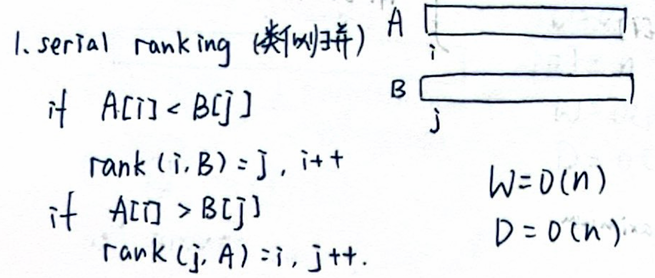 1. serial ranking (类似归并)
if A[i] < B[j]
rank (i, B) = j, i++
if A[i] > B[j]
rank (j, A) = i, j++.
A
i
B
j
W = O(n)
D = O(n)